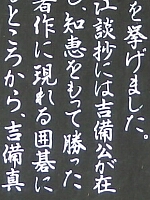 を挙げました。
江談抄には吉備公が在
し知恵をもって勝った
者作に現れる囲碁に
ところから、吉備真